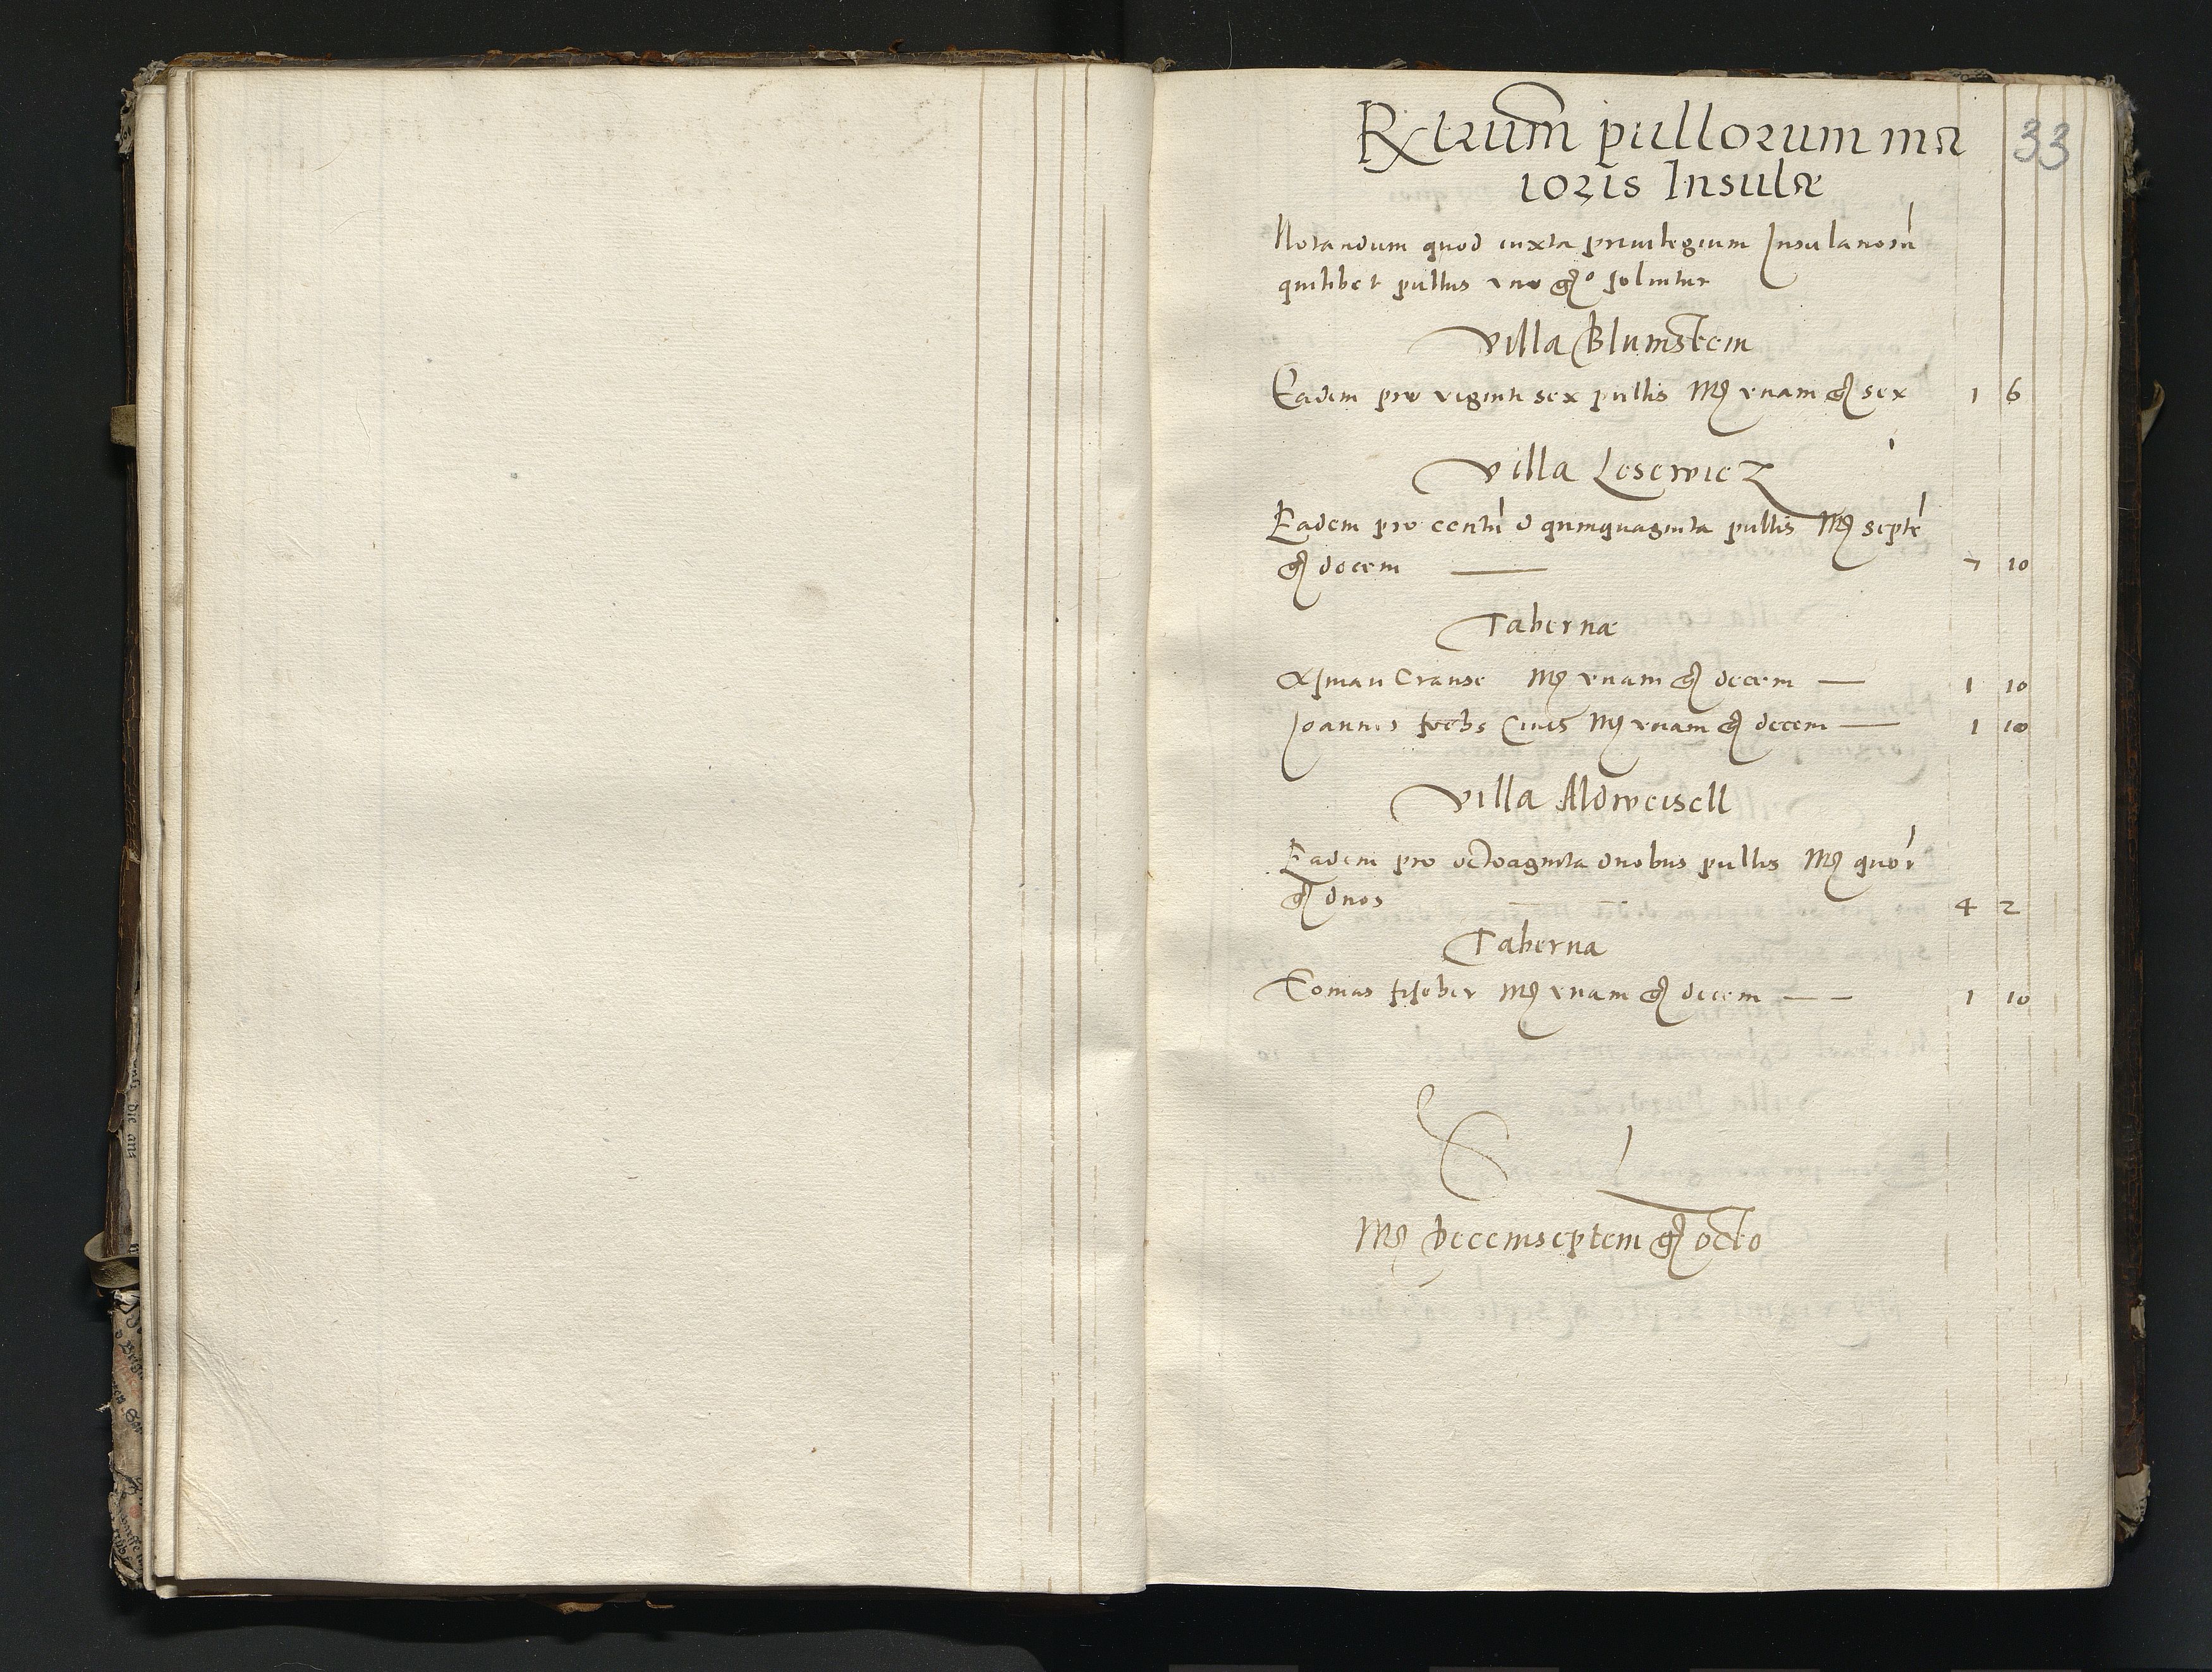 Rxtrum pullorum ma 33
ioris Insulæ
Notandum quod iuxta priuilegium Insulanorū
quilibet pullus vno gro soluitur
Villa Blumstein
Eadem pro viginti sex pullis Mr vnam gr sex 1 6
Villa Lesewicz
Eadem pro centū & quinquaginta pullis Mr septē
gr decem — 7 10
Tabernæ
Crause Mr vnam gr decem — 1 10
Joannes Ciuis Mr vnam gr decem — 1 10
Villa Aldweisell
Eadem pro octoaginta duobus pullis Mr quor
gr duos — — 4 2
Taberna
Tomas fischer Mr vnam gr decem — — 1 10
Mr Decemseptem gr octo